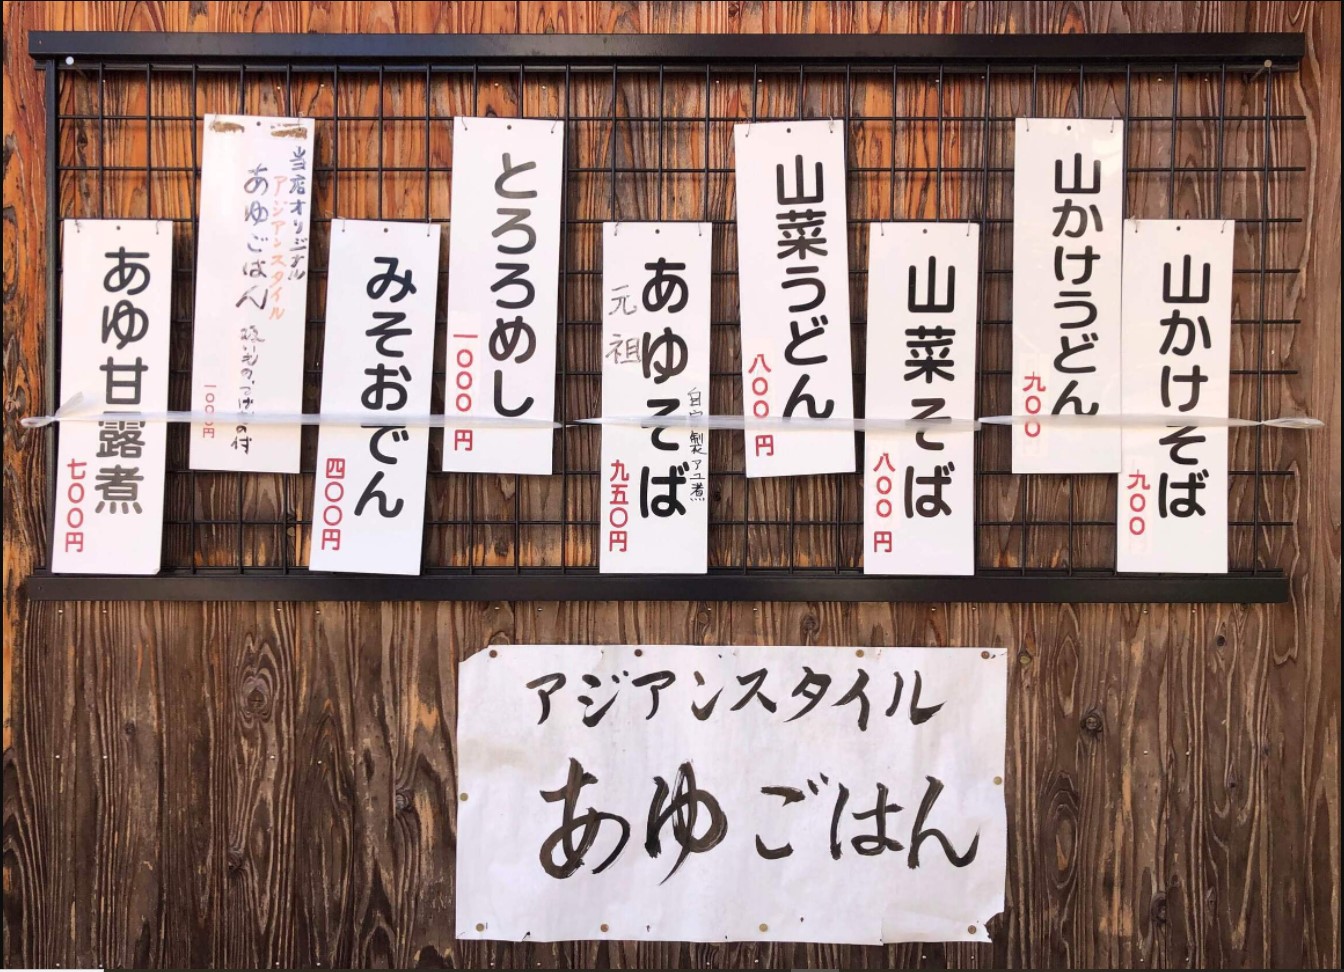 山かけそば
九〇〇
山かけうどん
九〇〇
山菜そば
八〇〇円
山菜うどん
八〇〇円
自家製アユ煮
あゆそば
元祖
九五〇円
とろろめし
一〇〇〇円
みそおでん
四〇〇円
当店オリジナル
アジアンスタイル
あゆごはん
付
一〇〇〇円
あゆ甘露煮
七〇〇円
アジアンスタイル
あゆごはん